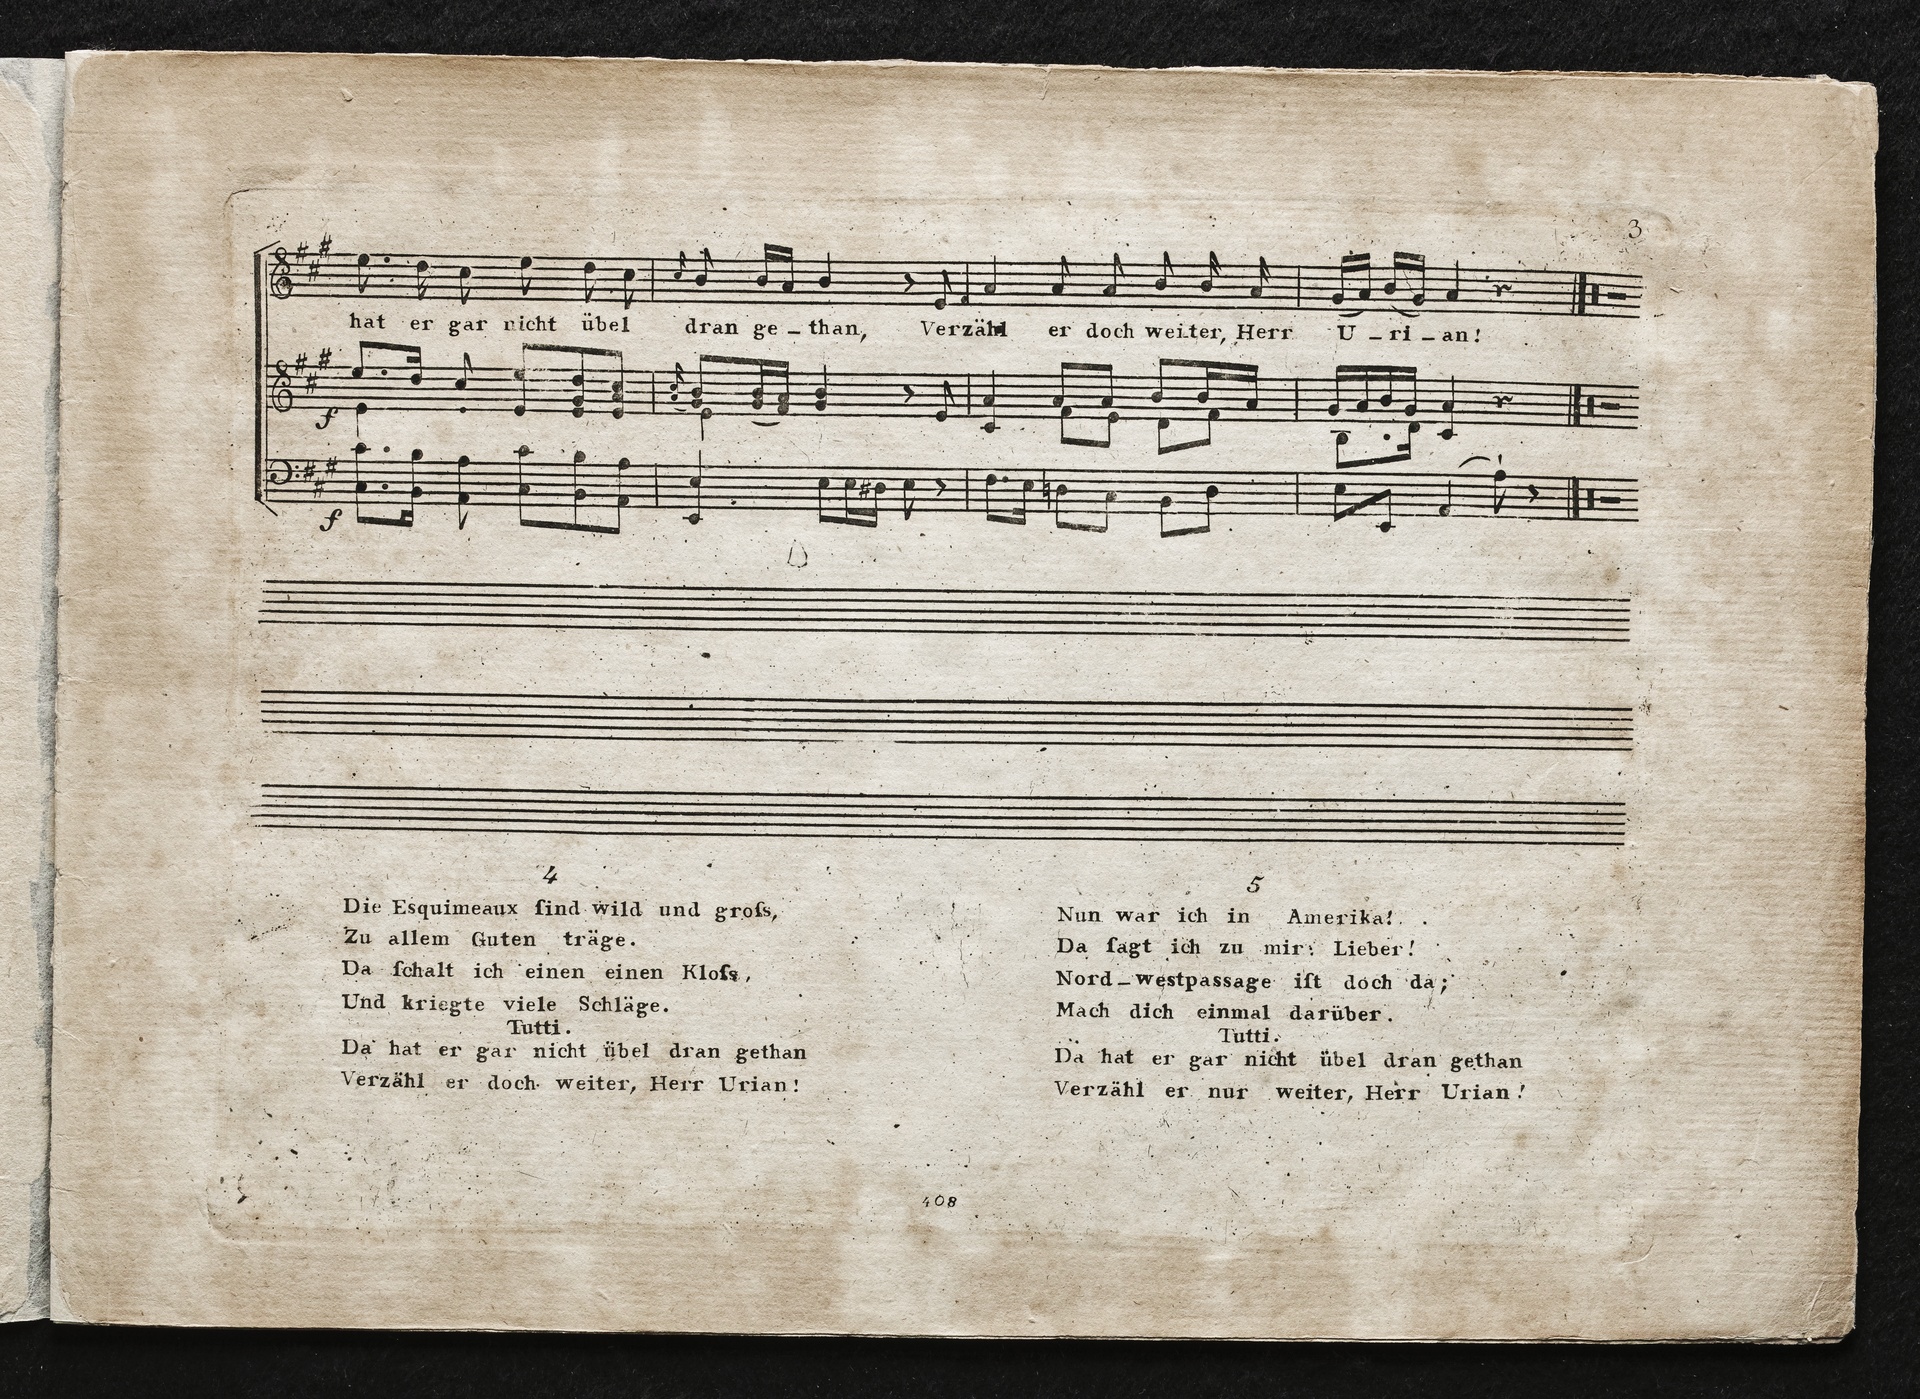 3
hat er gar nicht übel dran ge - than, Verzähl er doch weiter, Herr U - ri - an!
f
f
4
Die Esquimeaux ſind wild und groſs,
Zu allem Guten träge.
Da ſchalt ich einen einen Kloſs,
Und kriegte viele Schläge.
Tutti.
Da hat er gar nicht übel dran gethan
Verzähl er doch weiter, Herr Urian!
5
Nun war ich in Amerika!
Da ſagt ich zu mir: Lieber!
Nord-westpassage iſt doch da;
Mach dich einmal darüber.
Tutti.
Da hat er gar nicht übel dran gethan
Verzähl er nur weiter, Herr Urian!
408